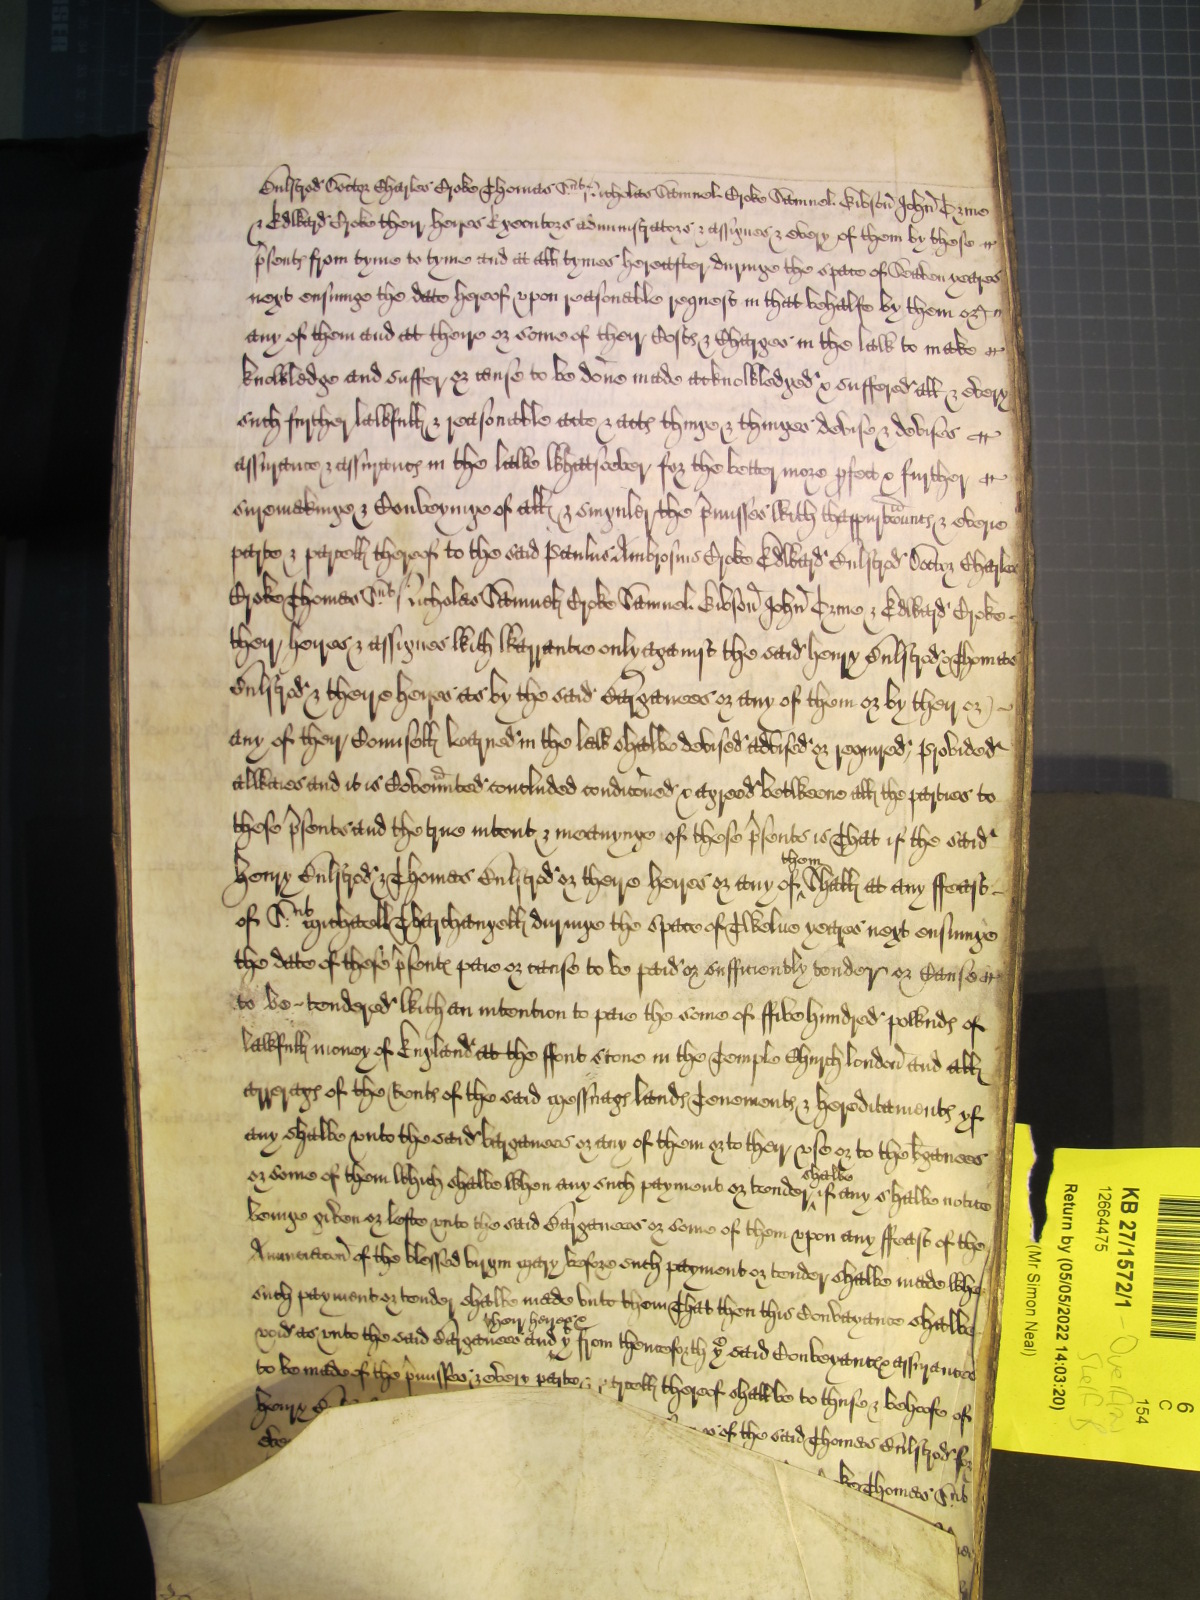 Bulstrod Doctor Charles Croke Thomas Snt Nicholas Samuel Croke Samuel Gibson John Tyme
& Edward Croke their heires Executors administrators & assignes & every of them by these
p̃sents from tyme to tyme and at all tymes hereafter duringe the space of Seaven yeares
next ensuinge the date hereof upon reasonable request in that behalfe by them or
any of them and at theire or some of their Costs & Charges in the law to make
knowledge and suffer or cause to be done made acknowledged & suffered all & every
such further lawfull & reasonable acte & acts thinge & thinges devise & devises
assurance & assurancs in the lawe whatsoever for the better more pfect & further
suremakinge & Conveyinge of all & singuler the p̃misses with thappurtenncs & everie
parte & parcell thereof to the said Paulus Ambrosius Croke Edward Bulstrod Doctor Charles
Croke Thomas Snt Nicholas Samuell Croke Samuel Gibson John Tyme & Edward Croke
their heires & assignes with warrantie only against the said henry Bulstrod & Thomas
Bulstrod & theire heires as by the said Barganees or any of them or by their or
any of their Counsell learned in the law shalbe devised advised or required, Provided
alwaies and it is Covennted concluded condicõned & agreed betweene all the parties to
these p̃sents and the true intent & meanynge of these p̃sents is That if the said
henry Bulstrod & Thomas Bulstrod or theire heires or any of them shall at any ffeast
of Snt Michaell Tharchangell duringe the space of Twelve yeares next ensuinge
the date of these p̃sents paie or cause to be paid or sufficiently tender or Cause
to be tendered with an intention to paie the some of ffive hundred pownds of
lawfull money of England at the ffont stone in the Temple Church london and all
arrerags of the Rents of the said messuags lands Tenements & hereditaments yf
any shalbe unto the said barganees or any of them or to their use or to the bganees
or some of them which shalbe when any such payment or tender shalbe if any shalbe notice
beinge given or lefte unto the said Barganees or some of them upon any ffeast of the
Annunciacon of the blessed virgin mary before such payment or tender shalbe made whe
such payment or tender shalbe made unto them That then this Conveyance shalbe
void as unto the said Barganees their heires & and yt from thenceforth ye said Conveyance & assurances
to be made of the p̃misses & every parte & pcell thereof shallbe to thuse & behoofe of
henry B
of the said Thomas Bulstrod for
Thomas Snt
KB 27/1572/1 - Overflow
Shelf 8
12664475
Return by (05/05/2022 14:03:20)
(Mr Simon Neal)
154
C
6